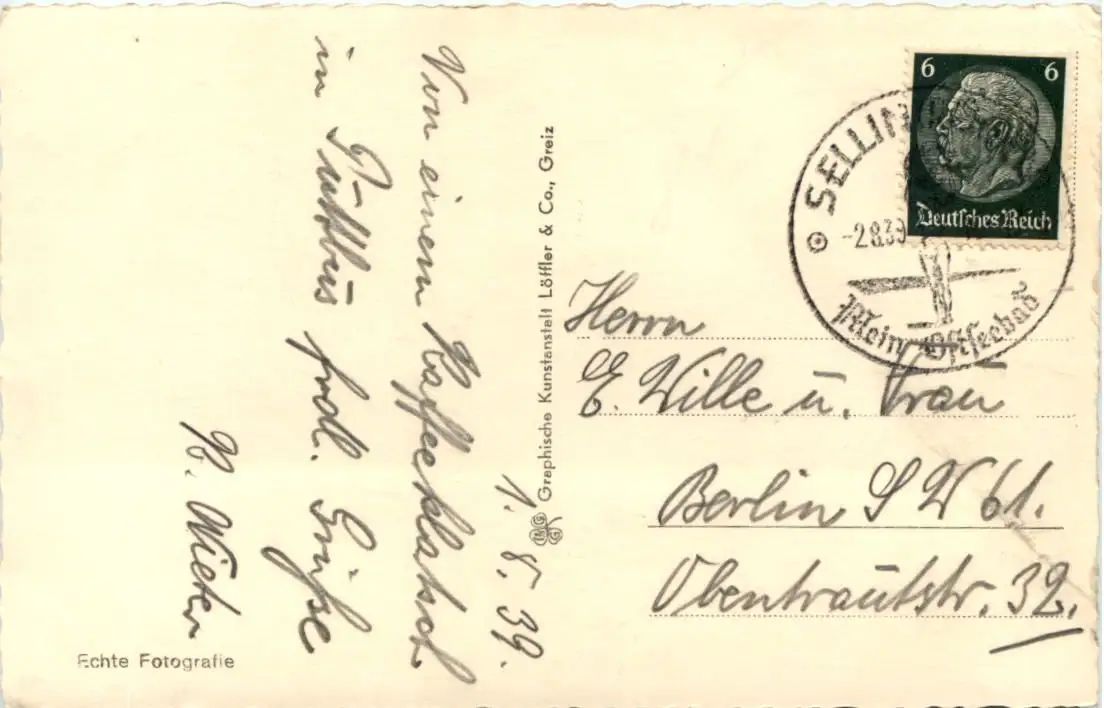 1. 8. 39.
Von einem Kaffeeklatsch
in Puttbus frdl. Grüße
Graphische Kunstanstalt Löffler & Co., Greiz
Echte Fotografie
6 6
Deutsches Reich
SELLIN
-2.8.39
Mein Ostseebad
Herrn
E. Wille u. Frau
Berlin S W 61.
Obentrautstr. 32.